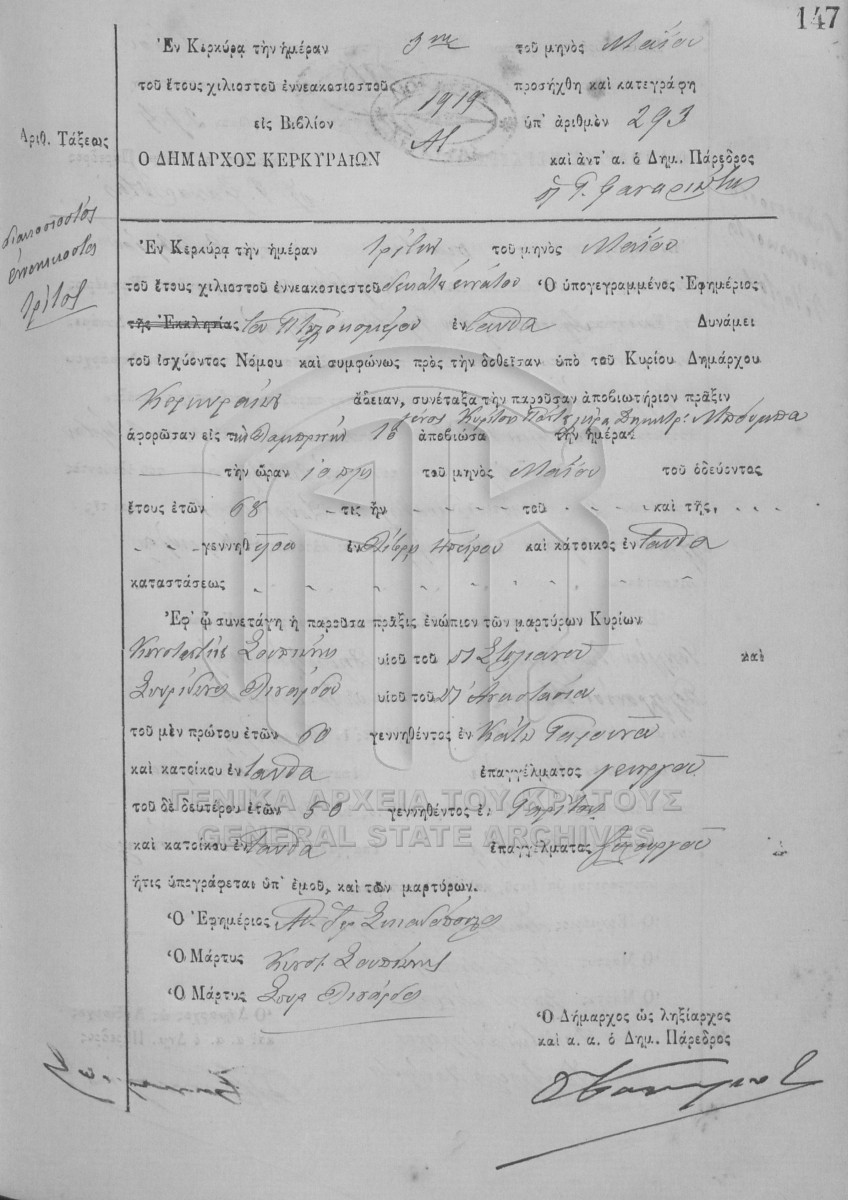 147
Ἐν Κερκύρᾳ τὴν ἡμέραν 3ην τοῦ μηνὸς Μαΐου
τοῦ ἔτους χιλιοστοῦ ἐννεακοσιοστοῦ 1919 προσήχθη καὶ κατεγράφη
εἰς Βιβλίον Αʹ ὑπ' ἀριθμὸν 293
Ἀριθ. Τάξεως
Ο ΔΗΜΑΡΧΟΣ ΚΕΡΚΥΡΑΙΩΝ καὶ ἀντ' α. ὁ Δημ. Πάρεδρος
Γ. Φαναριώτης
διακοσιοστός
ἐνενηκοστός
τρίτος
Ἐν Κερκύρᾳ τὴν ἡμέραν τρίτην τοῦ μηνὸς Μαΐου
τοῦ ἔτους χιλιοστοῦ ἐννεακοσιοστοῦ δεκάτου ἐννάτου Ὁ ὑπογεγραμμένος Ἐφημέριος
τῆς Ἐκκλησίας τοῦ Πτωχοκομείου ἐνταῦθα Δυνάμει
τοῦ ἰσχύοντος Νόμου καὶ συμφώνως πρὸς τὴν δοθεῖσαν ὑπὸ τοῦ Κυρίου Δημάρχου
Κερκυραίων ἄδειαν, συνέταξα τὴν παροῦσαν ἀποβιωτήριον πρᾶξιν
Δημητρ. Μπούμπα
ἀφορῶσαν εἰς τὴν Λαμπρινήν ἀποβιώσα τὴν ἡμέραν
τὴν ὥραν 10 πμ τοῦ μηνὸς Μαΐου τοῦ ὁδεύοντος
ἔτους ἐτῶν 68 τις ἦν τοῦ καὶ τῆς
γεννηθεῖσα ἐν Ἠπείρου καὶ κάτοικος ἐνταῦθα
καταστάσεως
Ἐφ' ᾧ συνετάγη ἡ παροῦσα πρᾶξις ἐνώπιον τῶν μαρτύρων Κυρίων
Κωνσταντῖνος Σουπιώνης υἱοῦ τοῦ Στυλιανοῦ καὶ
Σπυρίδωνος υἱοῦ τοῦ Ἀναστασίου
τοῦ μὲν πρώτου ἐτῶν 60 γεννηθέντος ἐν Κάτω Γαρούνα
καὶ κατοίκου ἐνταῦθα ἐπαγγέλματος γεωργοῦ
ΓΕΝΙΚΑ ΑΡΧΕΙΑ ΤΟΥ ΚΡΑΤΟΥΣ
τοῦ δὲ δευτέρου ἐτῶν 50 γεννηθέντος ἐν
GENERAL STATE ARCHIVES
καὶ κατοίκου ἐνταῦθα ἐπαγγέλματος ξυλουργοῦ
ἥτις ὑπογράφεται ὑπ' ἐμοῦ, καὶ τῶν μαρτύρων.
Ὁ Ἐφημέριος
Ὁ Μάρτυς Κωνστ. Σουπιώνης
Ὁ Μάρτυς Σπυρ
Ὁ Δήμαρχος ὡς ληξίαρχος
καὶ α. α. ὁ Δημ. Πάρεδρος